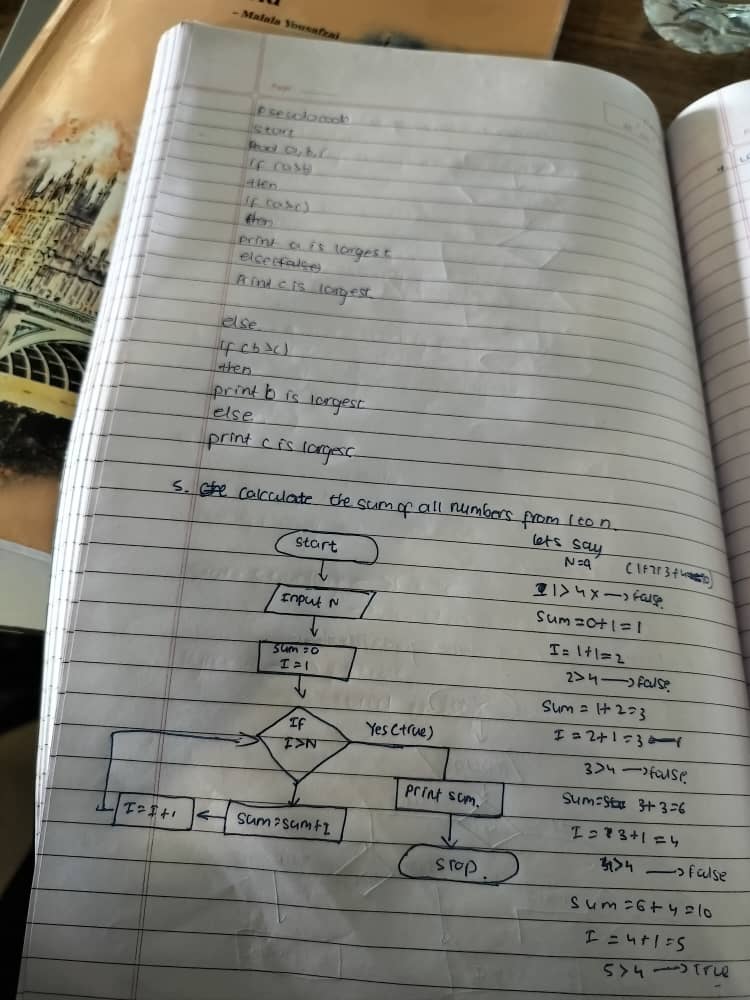 - Malala Yousafzai
Page
Pseudocode
start
Read a, b, c
if (a>b)
then
if (a>c)
then
print a is largest
else (false)
Print c is largest
else
if (b>c)
then
print b is largest
else
print c is largest
5. calculate the sum of all numbers from 1 to n.
start
Input N
sum=0
I=1
If
I>N
Yes (true)
print sum.
stop.
sum=sum+I
I=I+1
lets say
N=4
(1+2+3+4
1>4 x → false.
Sum=0+1=1
I=1+1=2
2>4 → false.
Sum = 1+2=3
I = 2+1=3
3>4 → false.
Sum= 3+3=6
I = 3+1=4
4>4 → false
Sum=6+4=10
I = 4+1=5
5>4 → True